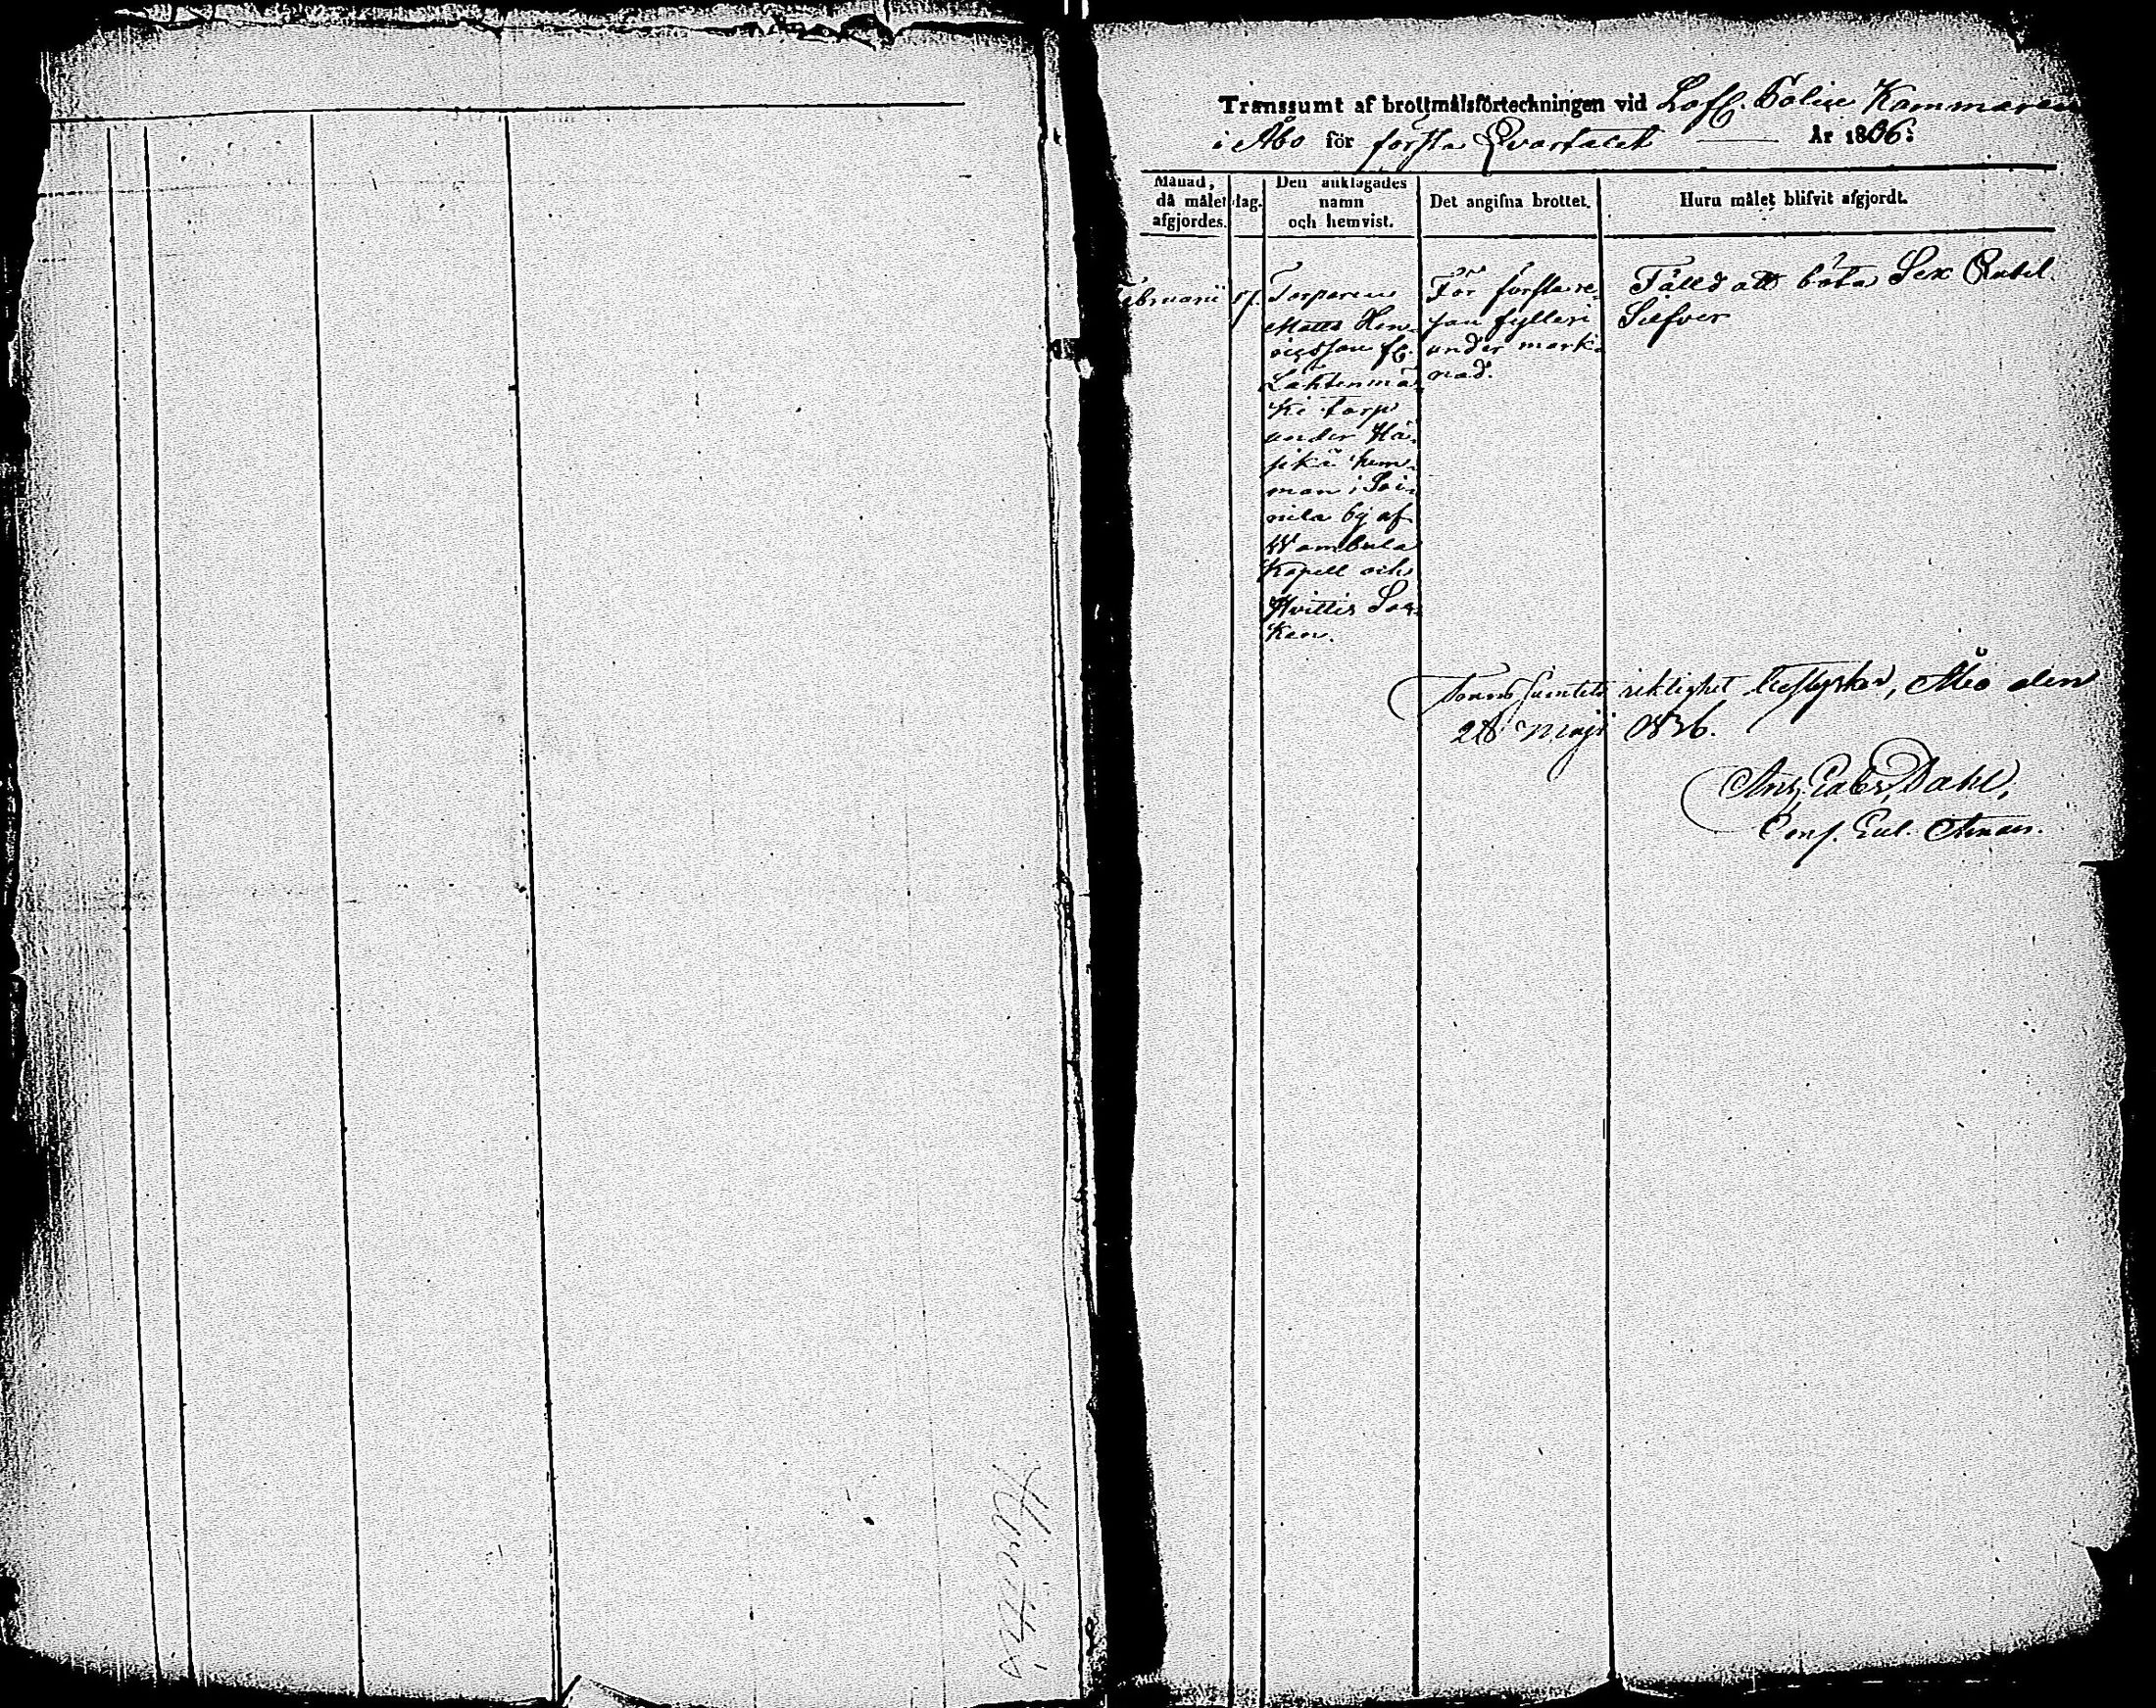 Transsumt af brottmålsförteckningen vid Lofl. Police Kammaren
i Åbo för första Qvartalet År 1856:
Månad, då målet afgjordes.
dag.
Den anklagades namn och hemvist.
Det angifna brottet.
Huru målet blifvit afgjordt.
Februarii
Torparen
Matts Hen-
ricsson fr.
Lähtenmä-
ki torp
under Hä-
jikä hem-
man i Soi-
nila by af
Wambula
Kapell och
Hvittis Soc-
ken.
För första re-
san fylleri
under mark-
nad.
Fälld att böta Sex Rubel
Silfver
Transsumtets riktighet bestyrker, Åbo den
28 Maji 1856.
Dahl,
Hvittis